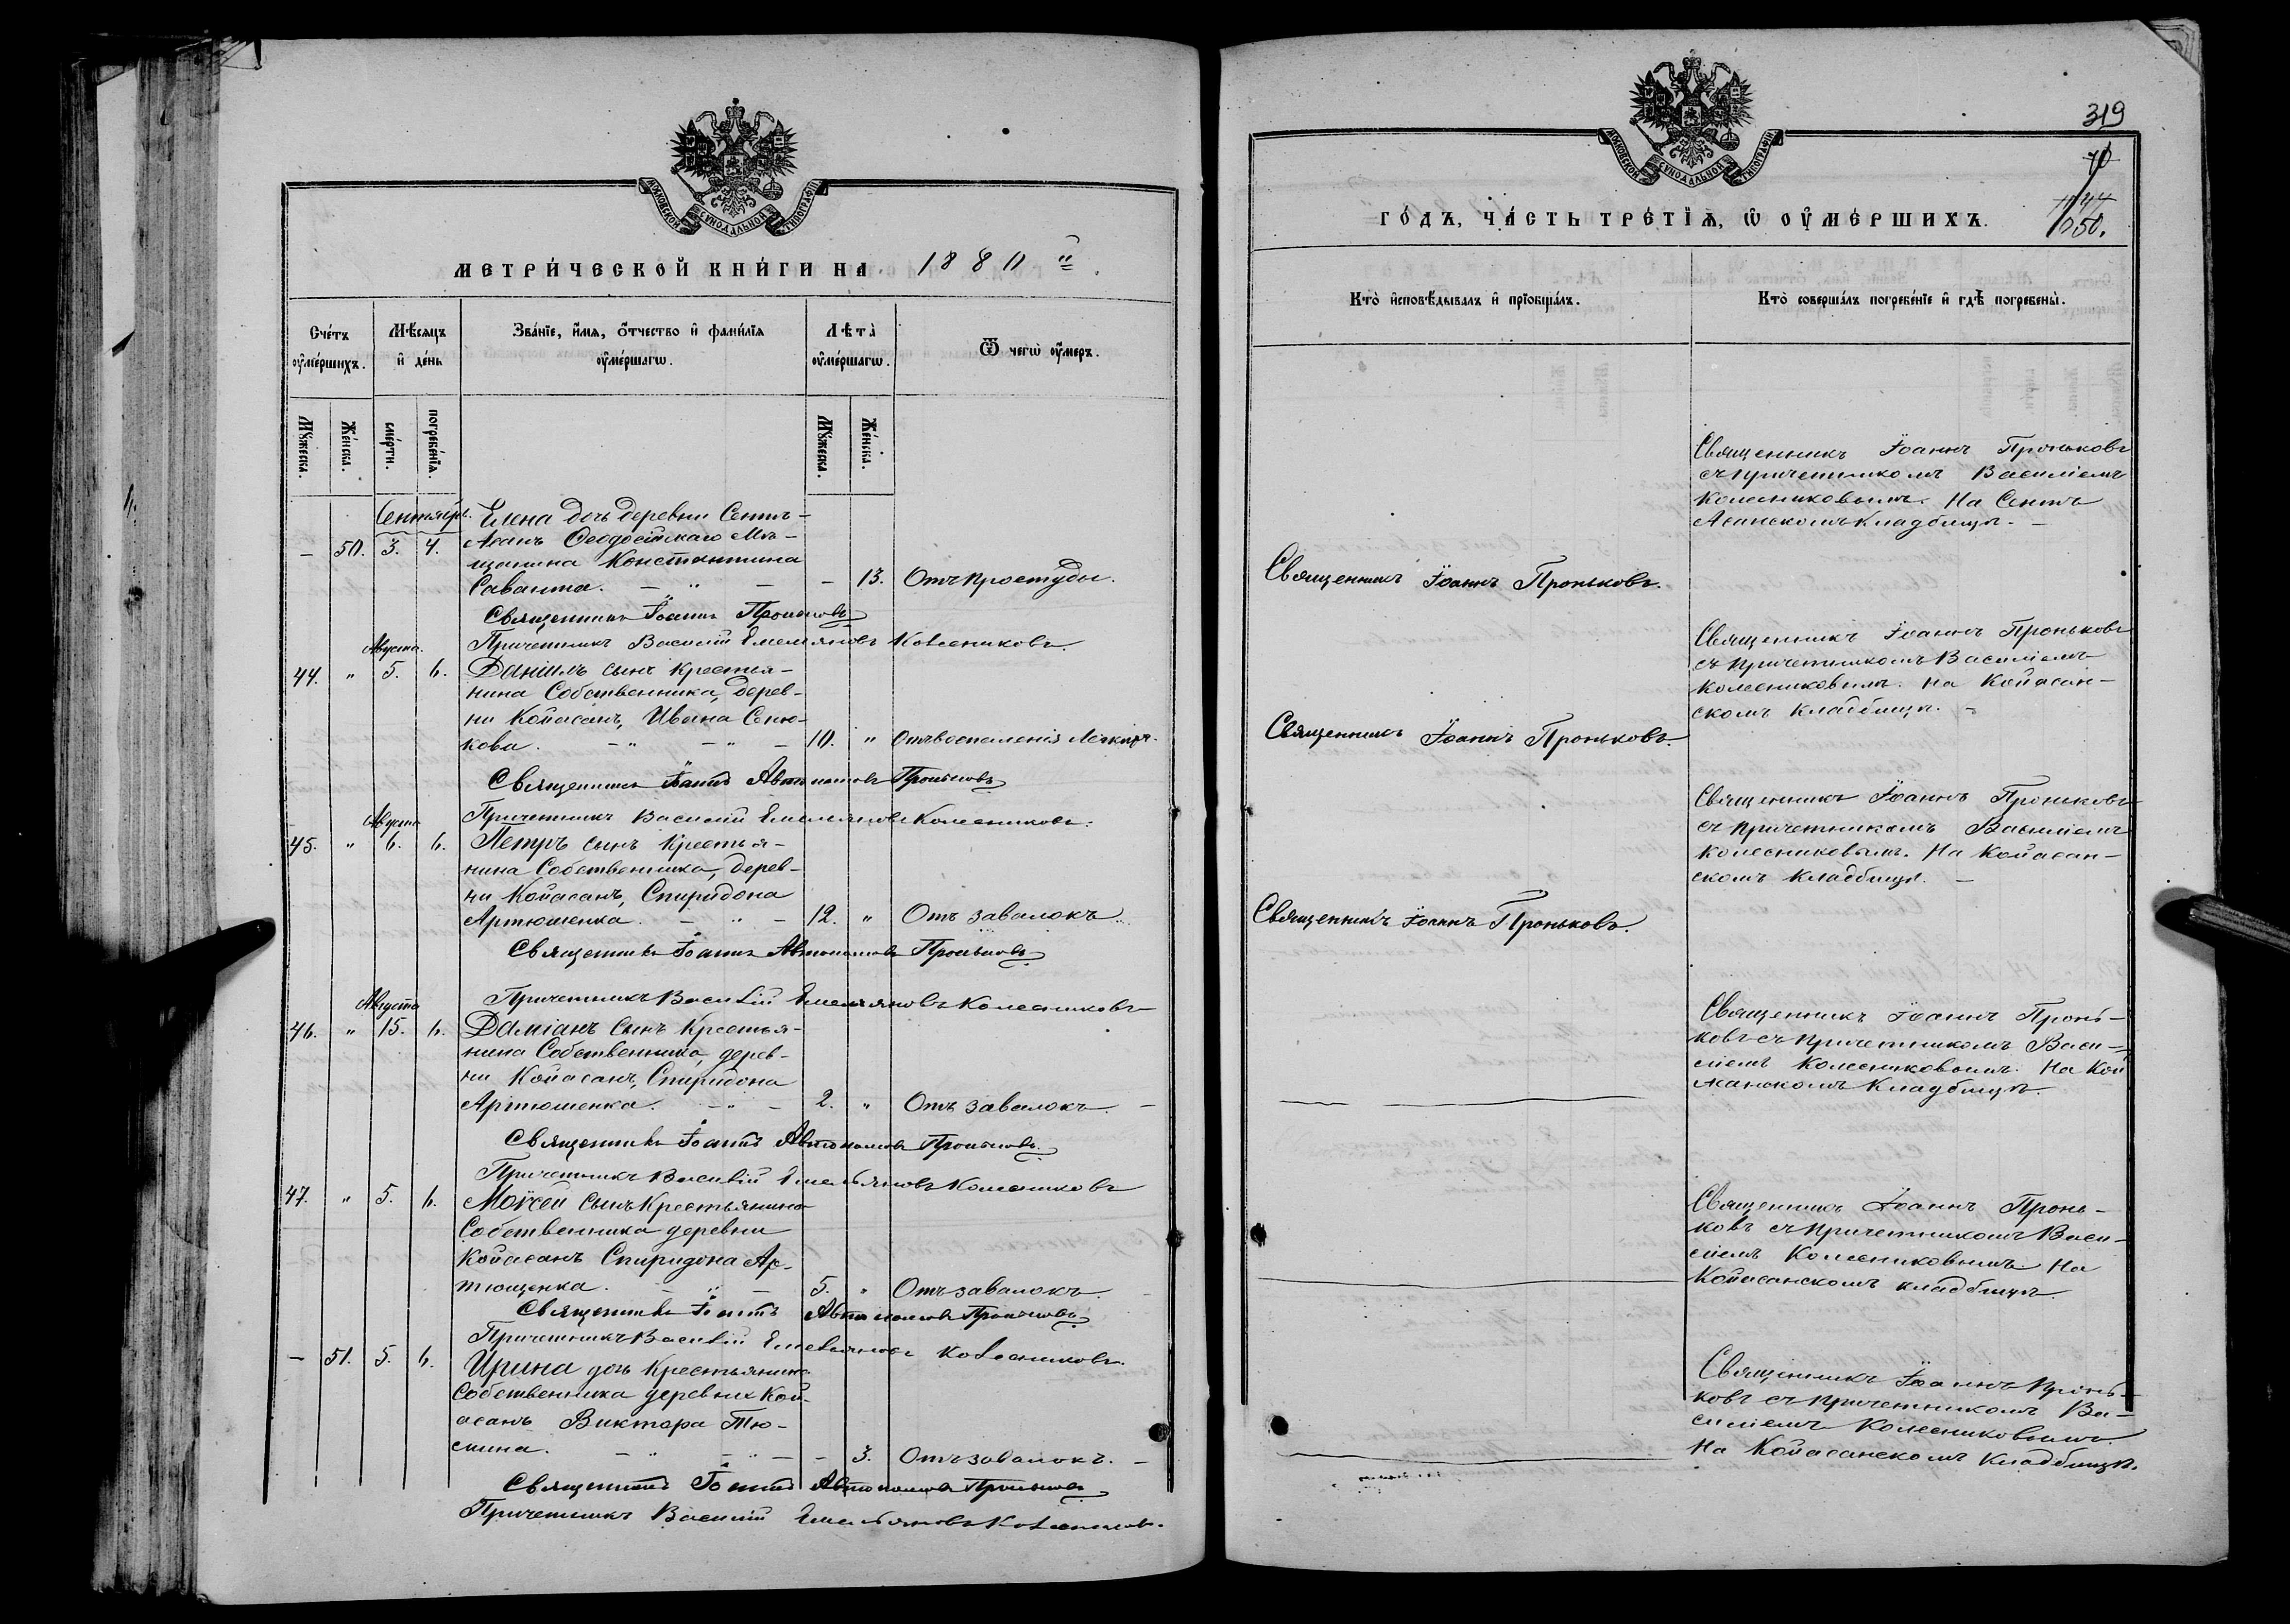 МОСКОВСКОЙ СУНОДАЛЬНОЙ ТИПОГРАФІИ
МЕТРИ́ЧЕСКОЙ КНИ́ГИ НА 1880 й.
Сче́тъ ᲂу҆ме́ршихъ.
Мѣ́сяцъ и҆ де́нь
Зва́нїе, и҆́мя, ѻ҆́тчество и҆ фами́лїя ᲂу҆ме́ршагѡ.
Лѣта̀ ᲂу҆ме́ршагѡ.
Ѿ чегѡ̀ ᲂу҆́меръ.
Му́жеска.
Же́нска.
сме́рти.
погребе́нїѧ.
Му́жеска.
Же́нска.
Сентябрь.
Елена дочь деревни Сентъ-
— 50. 3. 4. Асанъ Ѳеодосійскаго Мѣ-
щанина Константина
Саванта. — " — — 13. Отъ простуды.
Священникъ Іоаннъ Проньковъ
Причетникъ Василій Емельяновъ Колесниковъ.
Августа.
44. " 5. 6. Даніилъ сынъ крестья-
нина Собственника, дерев-
ни Койасанъ, Ивана Сеню-
кова. — " — " — 10. " Отъ воспаленія Легкихъ.
Священникъ Іоаннъ Автономовъ Проньковъ
Причетникъ Василій Емельяновъ Колесниковъ.
Августа
45. " 6. 6. Петръ сынъ Крестья-
нина Собственника, дерев-
ни Койасанъ, Спиридона
Артюшенка. — " — 12. " Отъ завалокъ.
Священникъ Іоаннъ Автономовъ Проньковъ
Причетникъ Василій Емельяновъ Колесниковъ
Августа
46. " 15. 6. Даміанъ Сынъ Крестья-
нина Собственника, дерев-
ни Койасанъ, Спиридона
Артюшенка. — " — 2. " Отъ завалокъ. —
Священникъ Іоаннъ Автономовъ Проньковъ.
Причетникъ Василій Емельяновъ Колесниковъ
47. " 5. 6. Моѵсей сынъ Крестьянина
Собственника деревни
Койасанъ Спиридона Ар-
тющенка. — " — 5. " Отъ завалокъ
Священникъ Іоаннъ Автономовъ Проньковъ
Причетникъ Василій Емельяновъ Колесниковъ.
— 51. 5. 6. Ирина дочь Крестьянина
Собственника деревни Кой-
асанъ Виктора Тю-
нина. — " — " — — 3. Отъ завалокъ. —
Священникъ Іоаннъ Автономовъ Проньковъ
Причетникъ Василій Емельяновъ Колесниковъ.
319
МОСКОВСКОЙ СУНОДАЛЬНОЙ ТИПОГРАФІИ
ГО́ДЪ, ЧА́СТЬ ТРЕ́ТЇѦ, Ѡ҆ ОУ҆МЕ́РШИХЪ.
650.
Кто̀ и҆сповѣ́дывалъ и҆ прїѡбща́лъ.
Кто̀ соверша́лъ погребе́нїе и҆ гдѣ̀ погребены̀.
Священникъ Іоаннъ Проньковъ
съ причетникомъ Василіемъ
Колесниковымъ. На Сентъ
Асанскомъ Кладбищѣ. —
Священникъ Іоаннъ Проньковъ.
Священникъ Іоаннъ Проньковъ
съ причетникомъ Василіемъ
Колесниковымъ. на Койасан-
скомъ кладбищѣ. —
Священникъ Іоаннъ Проньковъ.
Священникъ Іоаннъ Проньковъ
съ причетникомъ Василіемъ
Колесниковымъ. На Койасан-
скомъ кладбищѣ. —
Священникъ Іоаннъ Проньковъ.
Священникъ Іоаннъ Пронь-
ковъ съ причетникомъ Васи-
ліемъ Колесниковымъ. На Кой
Кладбищѣ.
Священникъ Іоаннъ Пронь-
ковъ съ причетникомъ Васи-
ліемъ Колесниковымъ На
Койасанскомъ кладбищѣ.
Священникъ Іоаннъ Пронь-
ковъ съ причетникомъ Ва-
силіемъ Колесниковымъ.
На Койасанскомъ Кладбищѣ.